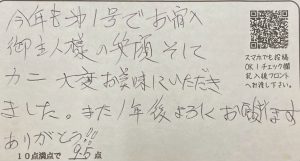 今年も第1号でお宿入
御主人様の笑顔そして
カニ大変お美味にいただき
ました。また1年後よろしくお願います
ありがとう!!
10点満点で 95点
スマホでも投稿
OK!チェック欄
記入後フロント
へお渡し下さい。